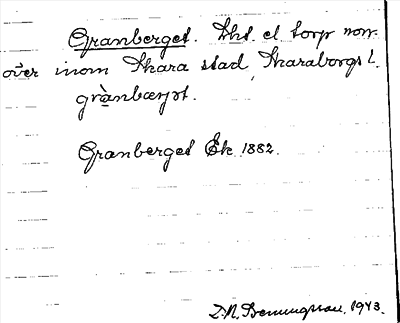 Granberget. Lht. el torp norr-
över inom Skara stad, Skaraborgs L.
grànbærjət.
Granberget Ek 1882.
1943.